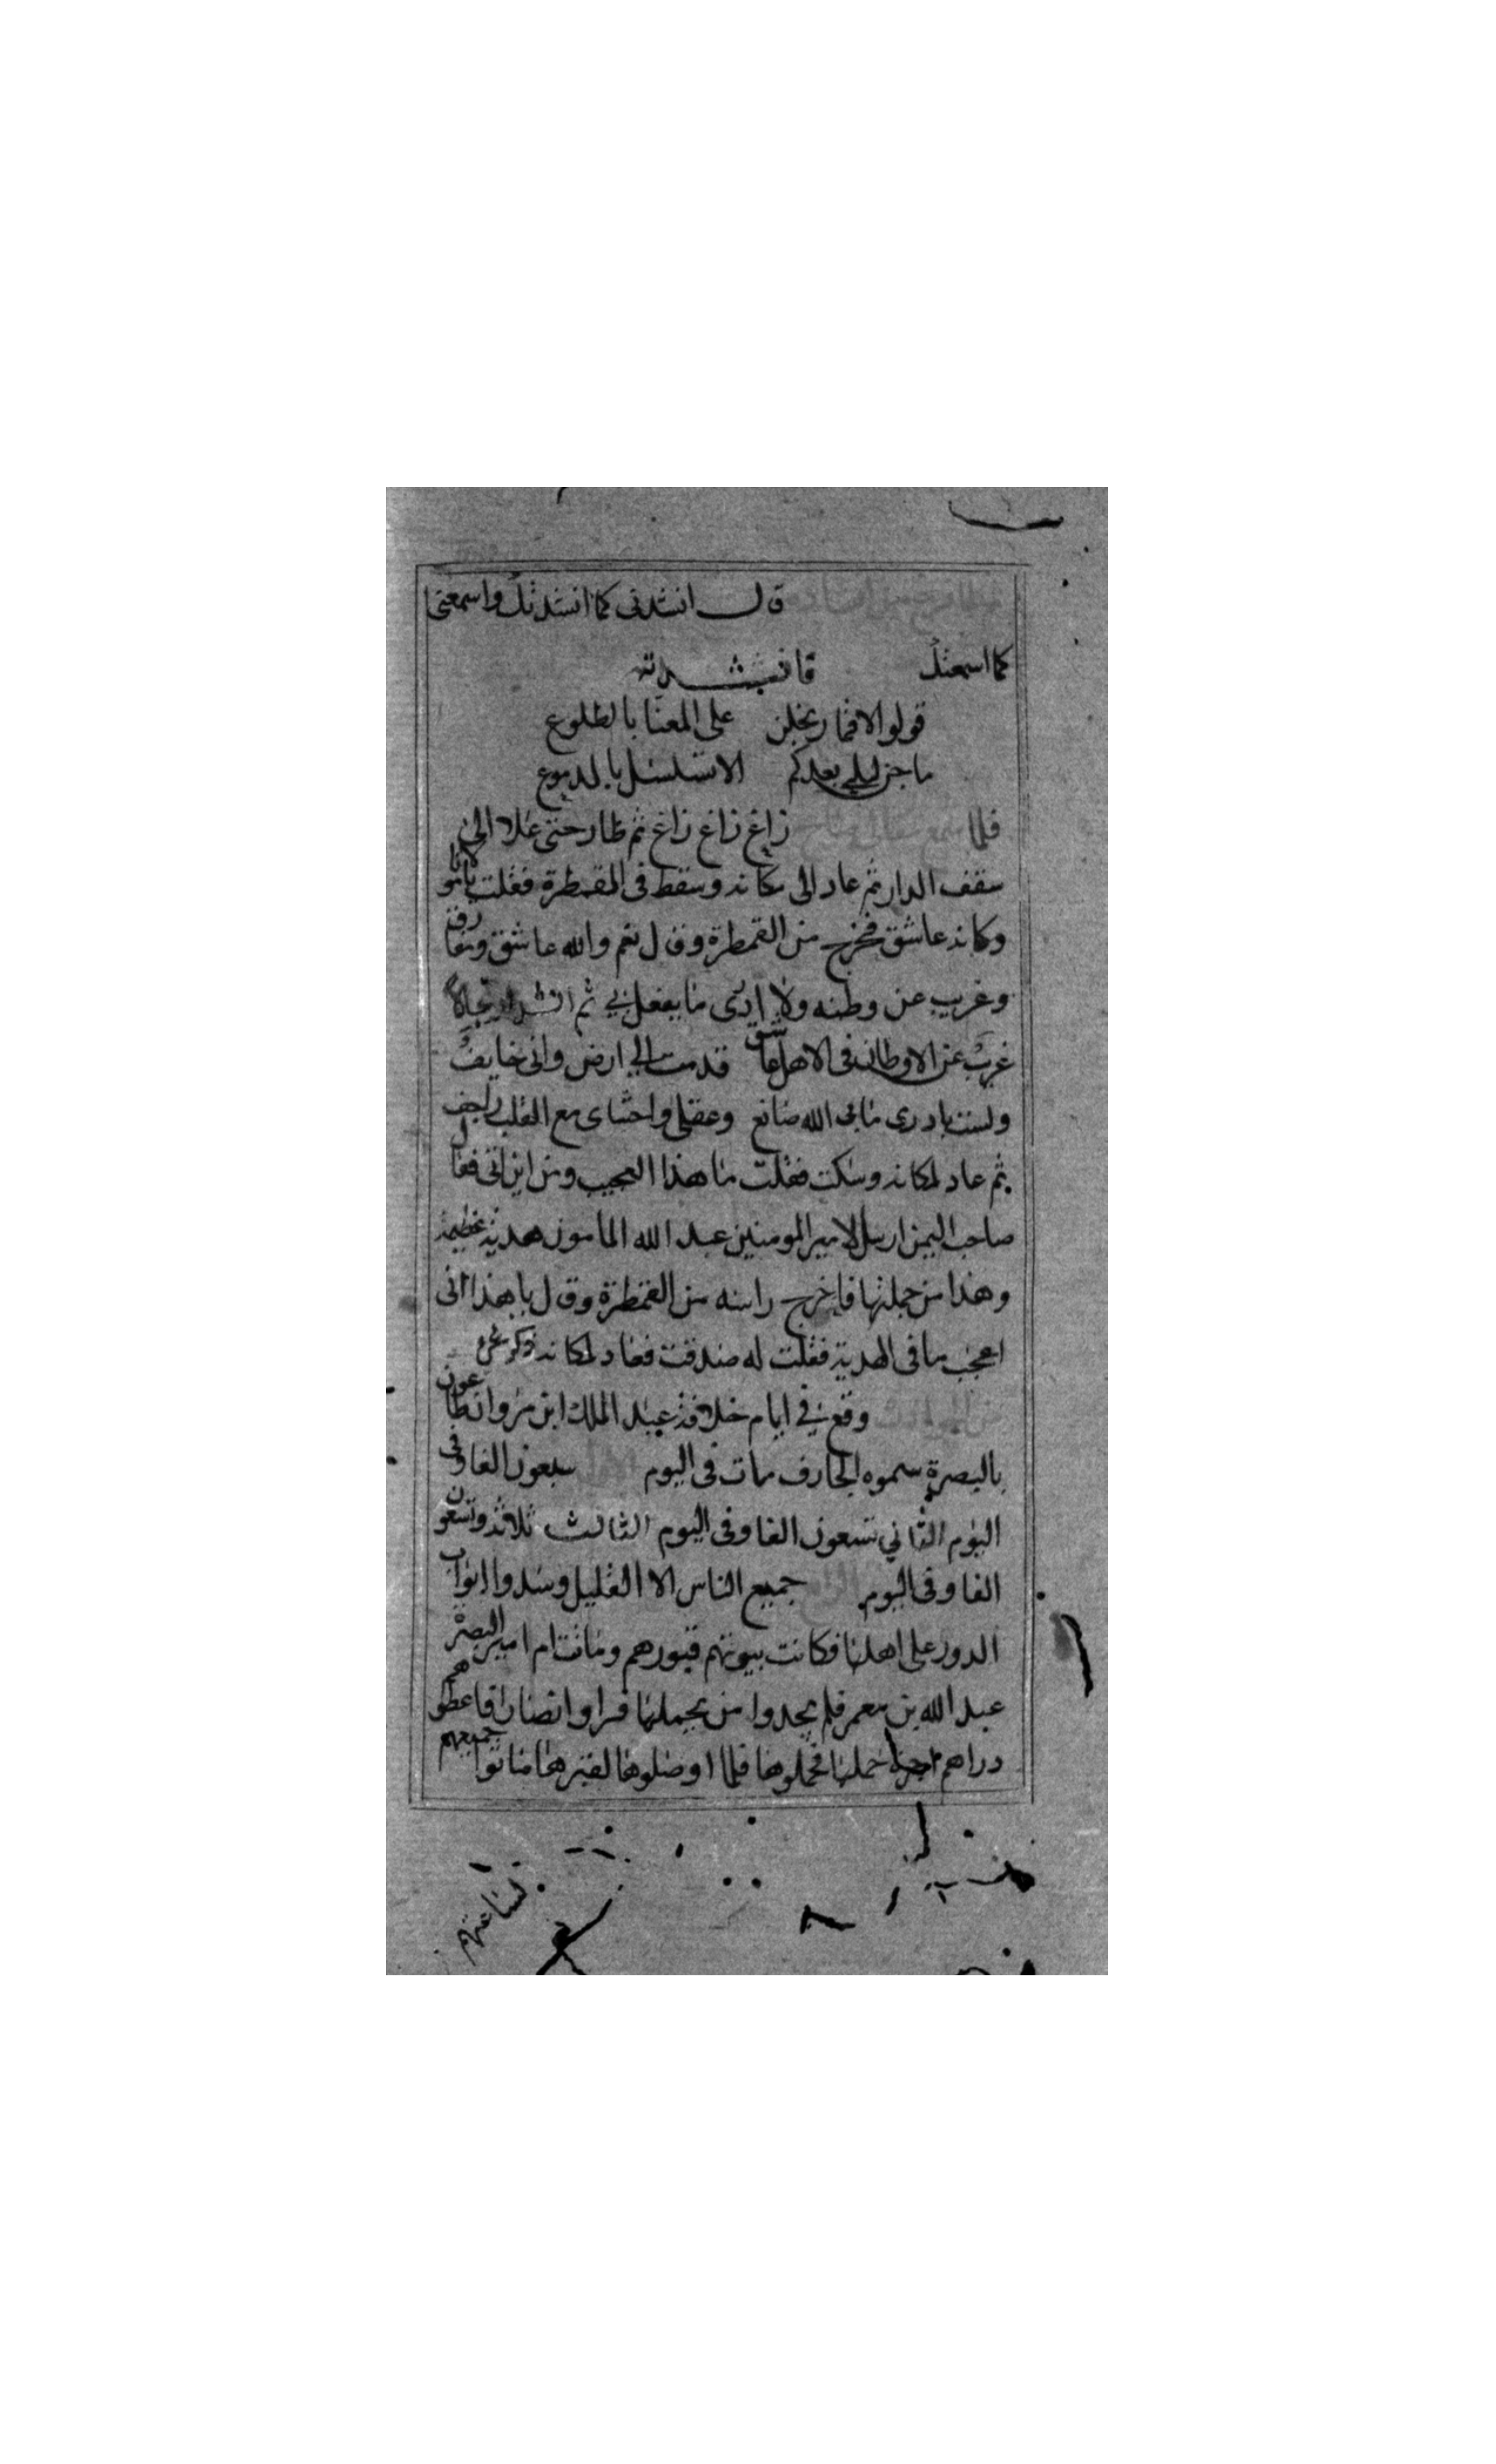 قال انشدنى كما انشدتك واسمعنى
كما اسمعتك فانشدته
قولو الاقمار تجلين على المعنا بالطلوع
ما جن ليلى بعدكم الا تسلسل بالدموع
فلما سمع زاغ زاغ زاغ ثم طار حتى علا الى
سقف الدار ثم عاد الى مكانه وسقط فى القمطرة فقلت
وكانه عاشق فخرج من القمطرة وقال نعم والله عاشق ومفارق
وغريب عن وطنه ولا ادرى ما يفعل بي ثم انشد
غريب عن الاوطان فى الاهل عاشق قدمت الى ارض وانى خايف
ولست بادرى ما بى الله صانع وعقلى واحشاى مع القلب راجف
ثم عاد لمكانه وسكت فقلت ما هذا العجيب ومن اين اتى فقال
صاحب اليمن ارسل لامير المومنين عبد الله المامون هدية عظيمة
وهذا من جملتها فاخرج راسه من القمطرة وقال يا هذا انى
اعجب ما فى الهدية فقلت له صدقت فعاد لمكانه
وقع في ايام خلافة عبد الملك ابن مروان طاعون
بالبصرة سموه الجارف مات فى اليوم الاول سبعون الفا وفى
اليوم الثاني تسعون الفا وفى اليوم الثالث ثلاثة وتسعون
الفا وفى اليوم الرابع جميع الناس الا القليل وسدوا ابواب
الدور على اهلها فكانت بيوتهم قبورهم وماتت ام امير البصرة
عبد الله بن معمر فلم يجدوا من يحملها فراوا انصارا فاعطوهم
دراهم اجرة حملها فحملوها فلما اوصلوها لقبرها ماتوا جميعهم
لساعتهم